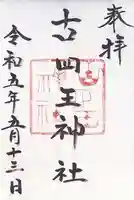 奉拝
古四王神社
令和五年五月十三日